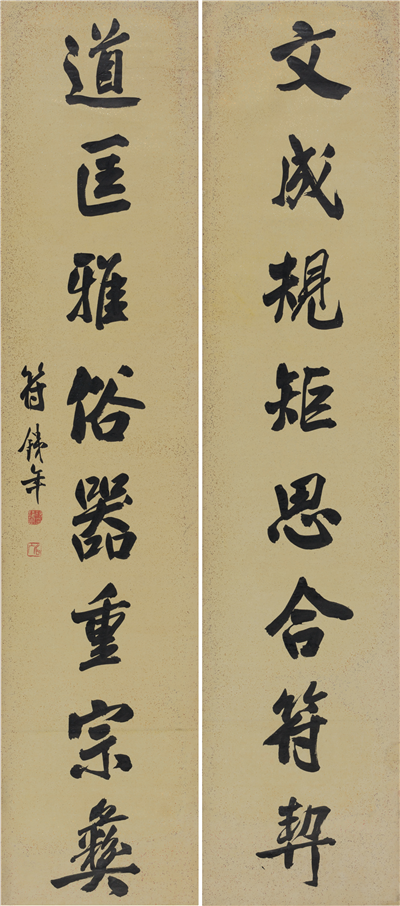 文成規矩思合符契
道匡雅俗器重宗彝
符鐵年